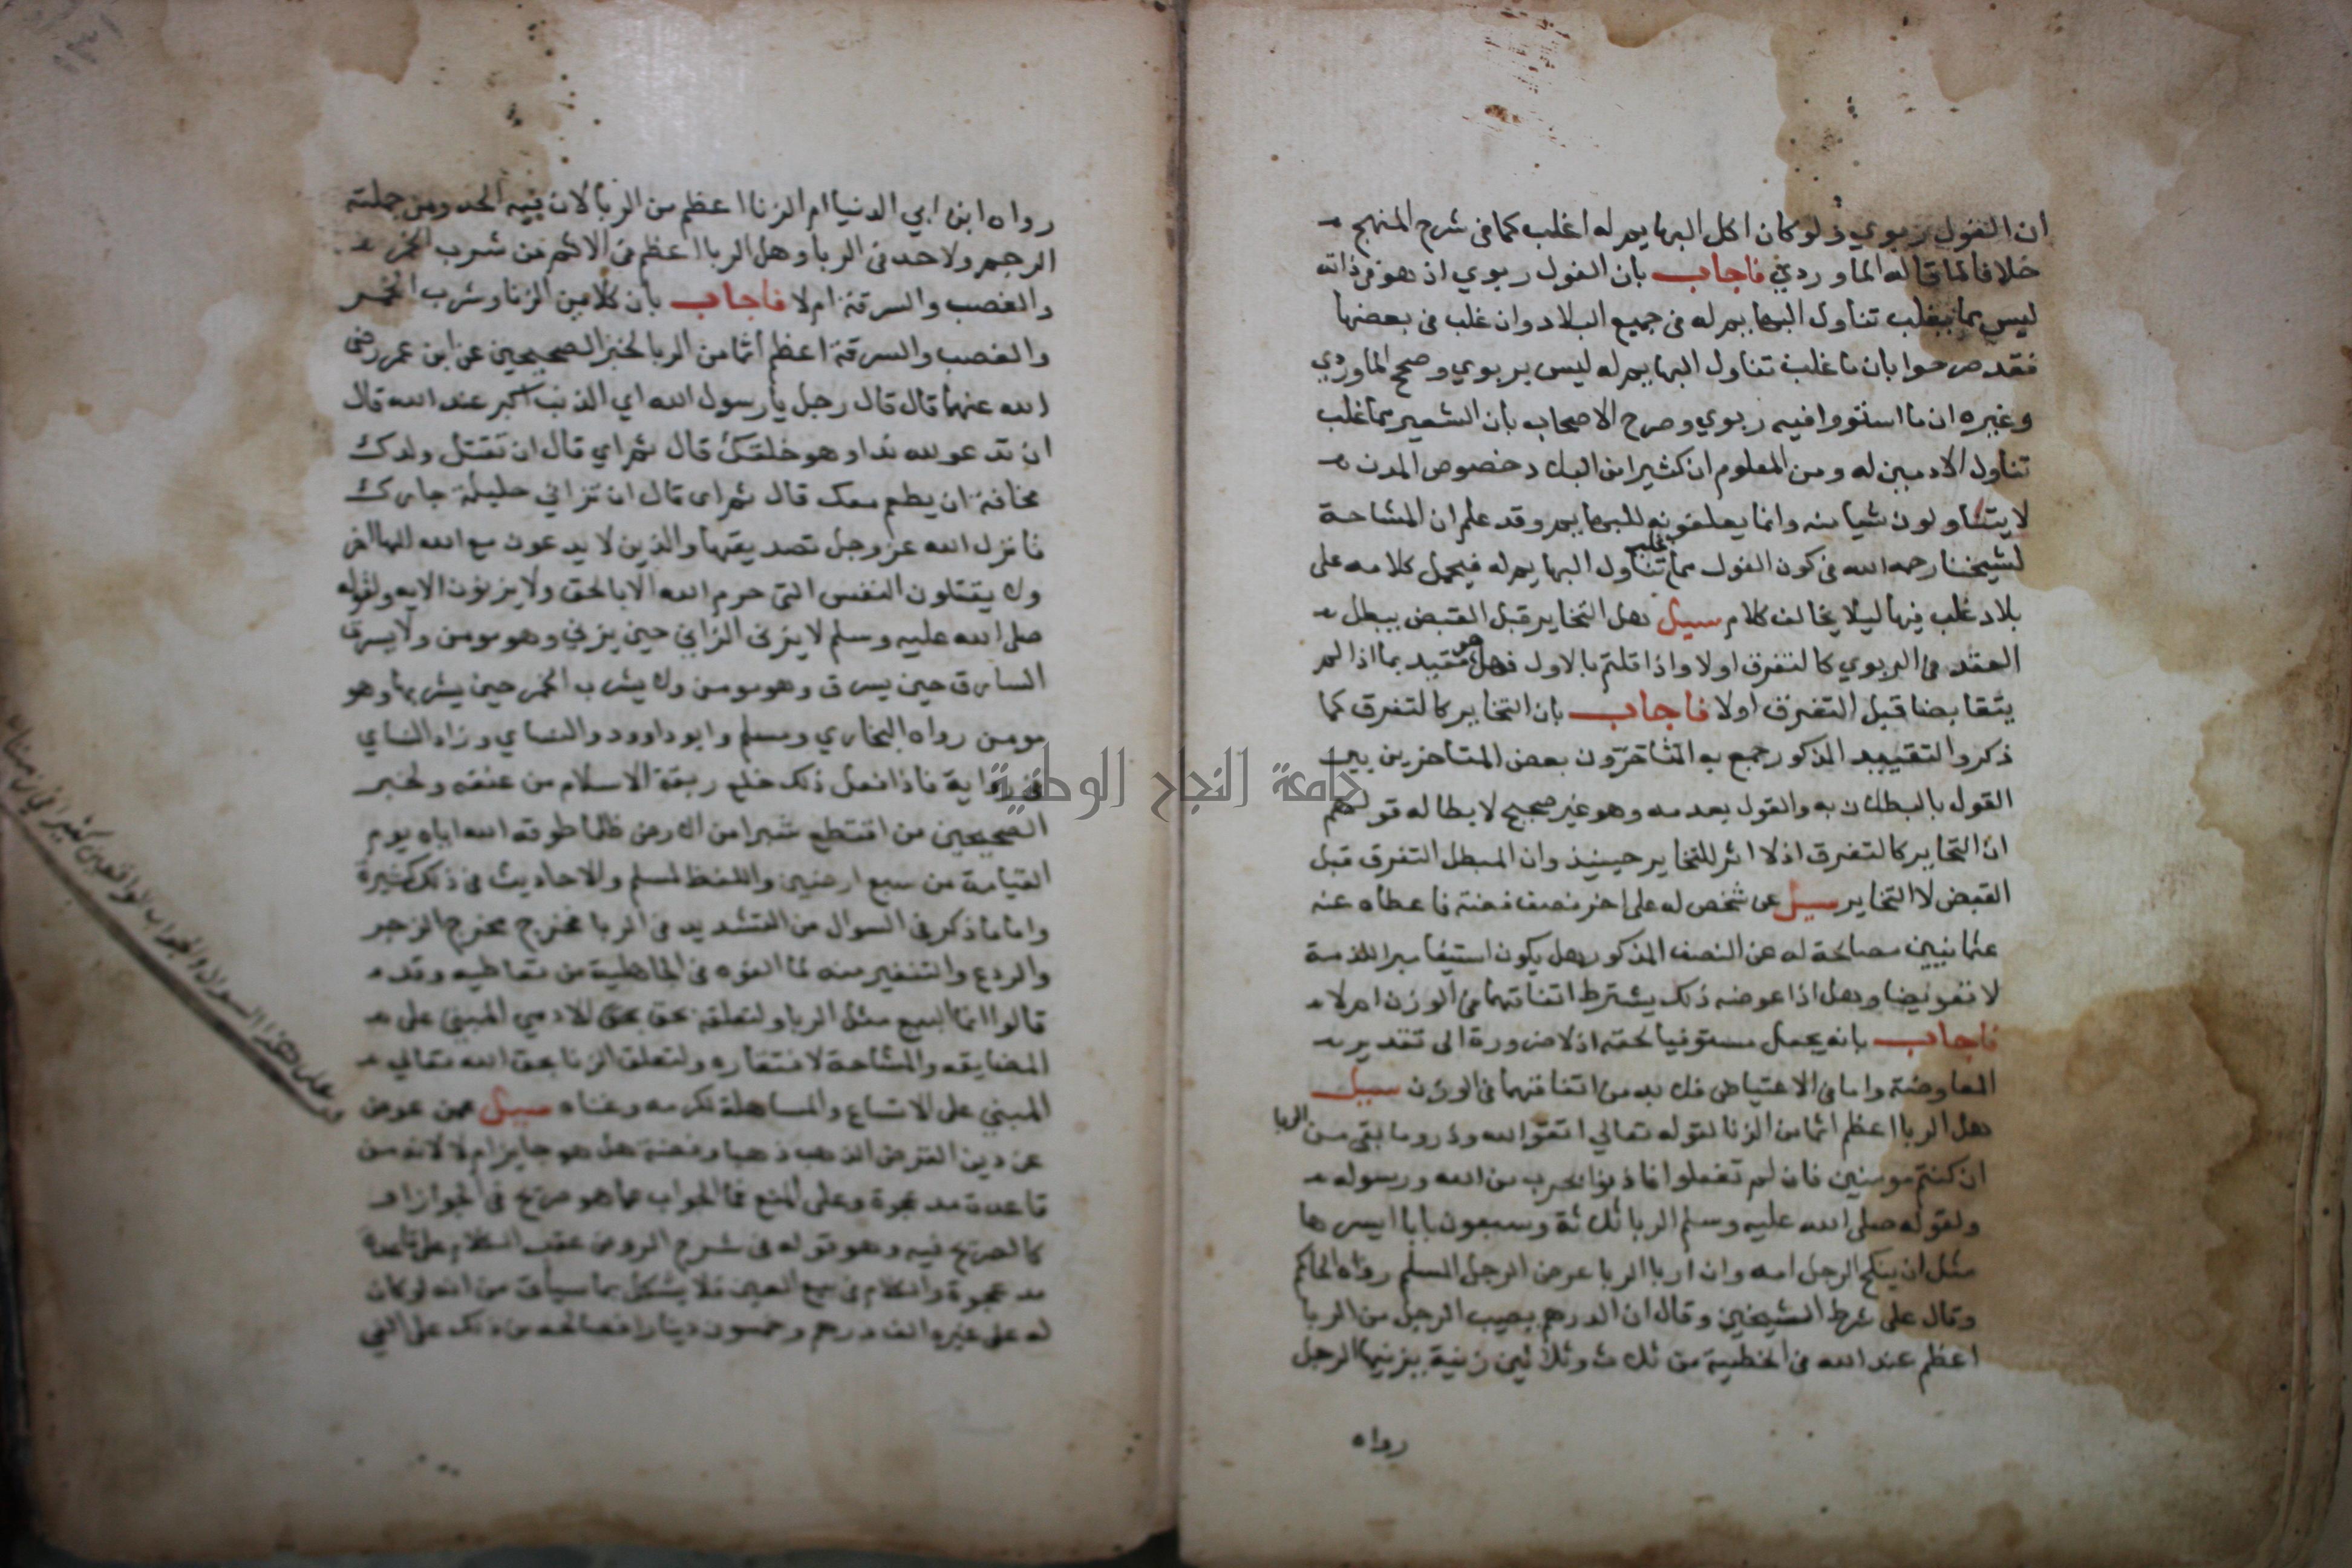 ان الفول ربوي ولو كان اكل البهايم له اغلب كما في شرح المنهج
خلافا لما قاله الماوردي فاجاب بان الفول ربوي اذ هو في ذاته
ليس مما يغلب تناول البهايم له في جميع البلاد وان غلب في بعضها
فقد صرحوا بان ما غلب تناول البهايم له ليس بربوي وصحح الماوردي
وغيره ان ما استووا فيه ربوي وصرح الاصحاب بان الشعير مما غلب
تناول الادميين له ومن المعلوم ان كثيرا من البلاد خصوص المدن
لا يتناولون شيا منه وانما يعلفونه للبهايم وقد علم ان المشاحة
لشيخنا رحمه الله في كون الفول مما غلب تناول البهايم له فيحمل كلامه على
بلاد غلب فيها ليلا يخالف كلام سيل هل التخاير قبل القبض يبطل
العقد في الربوي كالتفرق اولا واذا قلتم بالاول فهل هو مقيد بما اذا لم
يتقابضا قبل التفرق اولا فاجاب بان التخاير كالتفرق كما
ذكر والتقييد المذكور جمع به المتاخرون بعض المتاخرين بين
القول بالبطلان به والقول بعدمه وهو غير صحيح لابطاله قولهم
ان التخاير كالتفرق اذ لا اثر للتخاير حينيذ وان المبطل التفرق قبل
القبض لا التخاير سيل عن شخص له على اخر نصف فضة فاعطاه عنه
عثمانيين مصالحة له عن النصف المذكور هل يكون استيفا مبرا للذمة
لا تعويضا وهل اذا عوضه ذلك يشترط اتفاقهما في الوزن ام لا
فاجاب بانه يجعل مستوفيا لحقه اذ لا ضرورة الى تقدير
المعاوضة واما في الاعتياض فلا بد من اتفاقهما في الوزن سيل
هل الربا اعظم اثما من الزنا لقوله تعالى اتقوا الله وذروا ما بقي من الربا
ان كنتم مومنين فان لم تفعلوا فاذنوا بحرب من الله ورسوله
ولقوله صلى الله عليه وسلم الربا ثلاثة وسبعون بابا ايسرها
مثل ان ينكح الرجل امه وان اربا الربا عرض الرجل المسلم رواه الحاكم
وقال على شرط الشيخين وقال ان الدرهم يصيب الرجل من الربا
اعظم عند الله في الخطية من ثلاث وثلاثين زنية يزنيها الرجل
رواه
رواه ابن ابي الدنيا ام الزنا اعظم من الربا لان فيه الحد ومن جملته
الرجم ولا حد في الربا وهل الربا اعظم في الاثم من شرب الخمر
والغصب والسرقة ام لا فاجاب بان كلا من الزنا وشرب الخمر
والغصب والسرقة اعظم اثما من الربا لخبر الصحيحين عن ابن عمر رضي
الله عنهما قال قال رجل يا رسول الله اي الذنب اكبر عند الله قال
ان تدعو لله ندا وهو خلقك قال ثم اي قال ان تقتل ولدك
مخافة ان يطعم معك قال ثم اي قال ان تزاني حليلة جارك
فانزل الله عز وجل تصديقها والذين لا يدعون مع الله الها اخر
ولا يقتلون النفس التي حرم الله الا بالحق ولا يزنون الايه ولقوله
صلى الله عليه وسلم لا يزنى الزاني حين يزني وهو مومن ولا يسرق
السارق حين يسرق وهو مومن ولا يشرب الخمر حين يشربها وهو
مومن رواه البخاري ومسلم وابو داوود والنساي وزاد النساي
في رواية فاذا فعل ذلك خلع ربقة الاسلام من عنقه ولخبر
الصحيحين من اقتطع شبرا من الارض ظلما طوقه الله اياه يوم
القيامة من سبع ارضين واللفظ لمسلم والاحاديث في ذلك كثيرة
واما ما ذكر في السوال من التشديد في الربا فخرج مخرج الزجر
والردع والتنفير منه لما الفوه في الجاهلية من تعاطيه وقد
قالوا انما البيع مثل الربا ولتعلقه بحق الادمي المبني على
المضايقه والمشاحة لافتقاره ولتعلق الزنا بحق الله تعالى
المبني على الاتساع والمساهلة لكرمه وغناه سيل عمن عوض
عن دين القرض الذهب ذهبا وفضة هل هو جايز ام لا لانه من
قاعدة مد عجوة وعلى المنع فما الجواب عما هو صريح في الجواز او
كالصريح فيه وهو قوله في شرح الروض عقب الكلام على قاعدة
مد عجوة والكلام في بيع العين فلا يشكل بما سياتي من انه لو كان
له على غيره الف درهم وخمسون دينارا فصالحه من ذلك على الفي
على هذا السوال والجواب لواقعين كثيرا في زمننا
جامعة النجاح الوطنية
١٣١